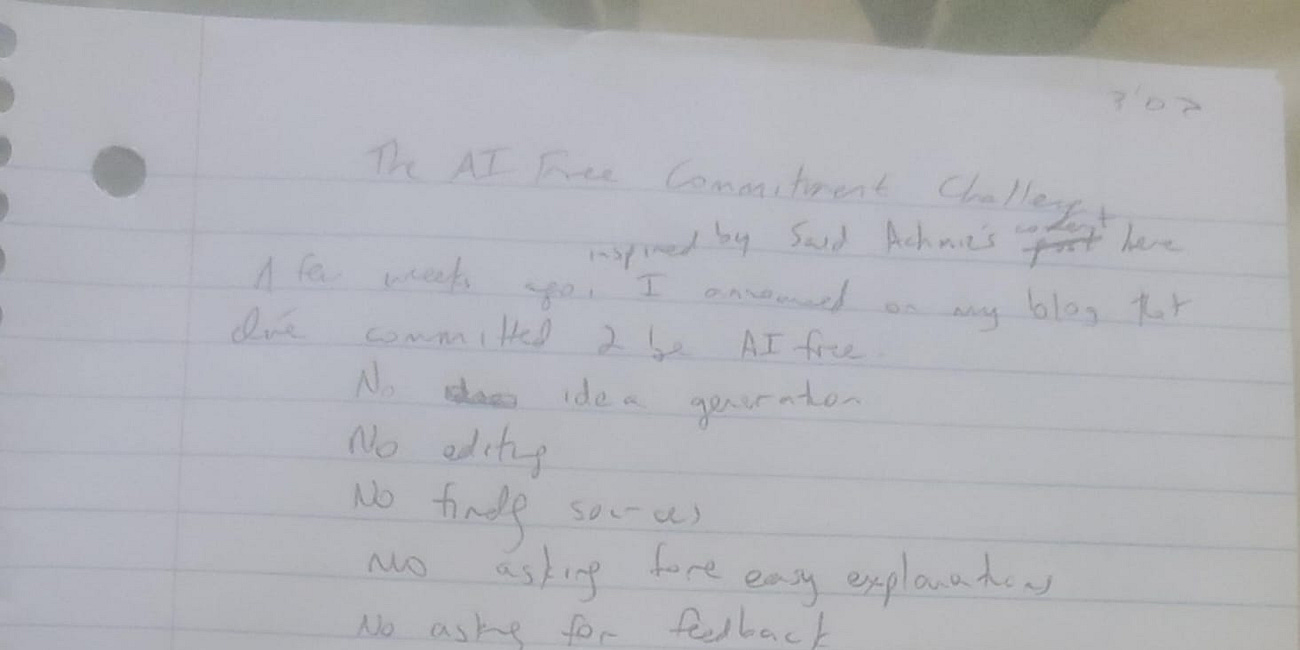 3:07
The AI Free Commitment Challenge
inspired by Said Achmiz's content post here
A few weeks ago, I announced on my blog that
I've committed 2 be AI free.
No idea generation
No editing
No finding sources
No asking fore easy explanations
No asking for feedback